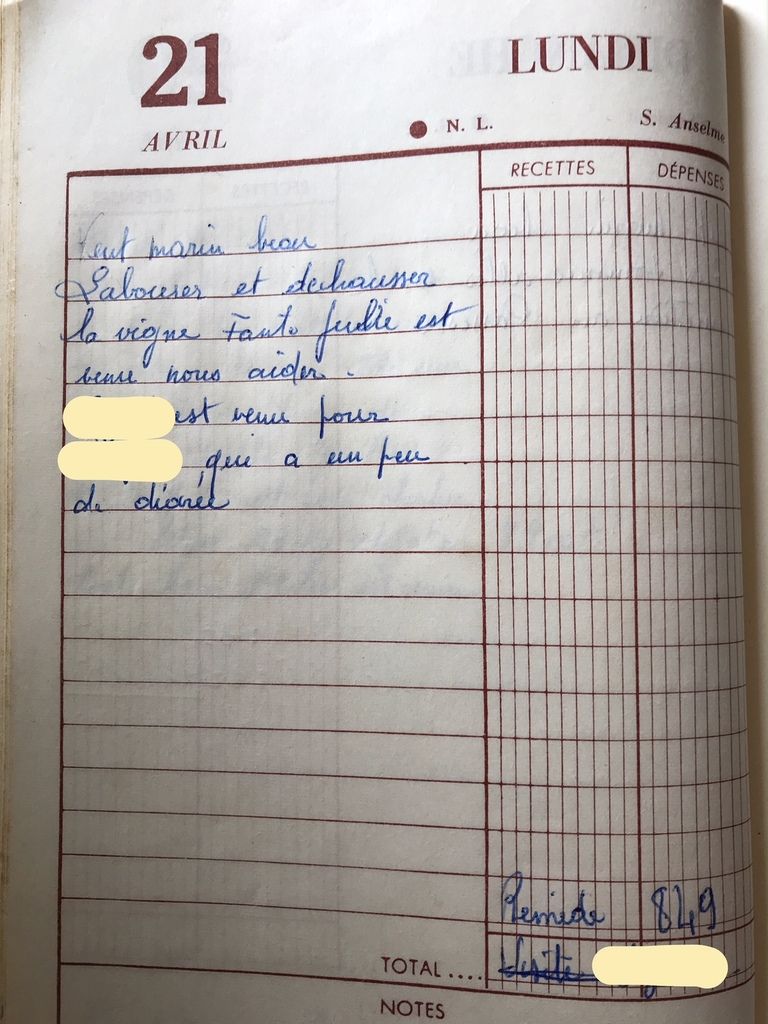 21
LUNDI
AVRIL
N. L.
S. Anselme
RECETTES
DÉPENSES
Vent marin beau
Labourer et dechausser
la vigne Tante est
venue nous aider.
est venu pour
qui a un peu
de diarée
Remède 849
Visite
TOTAL ....
NOTES